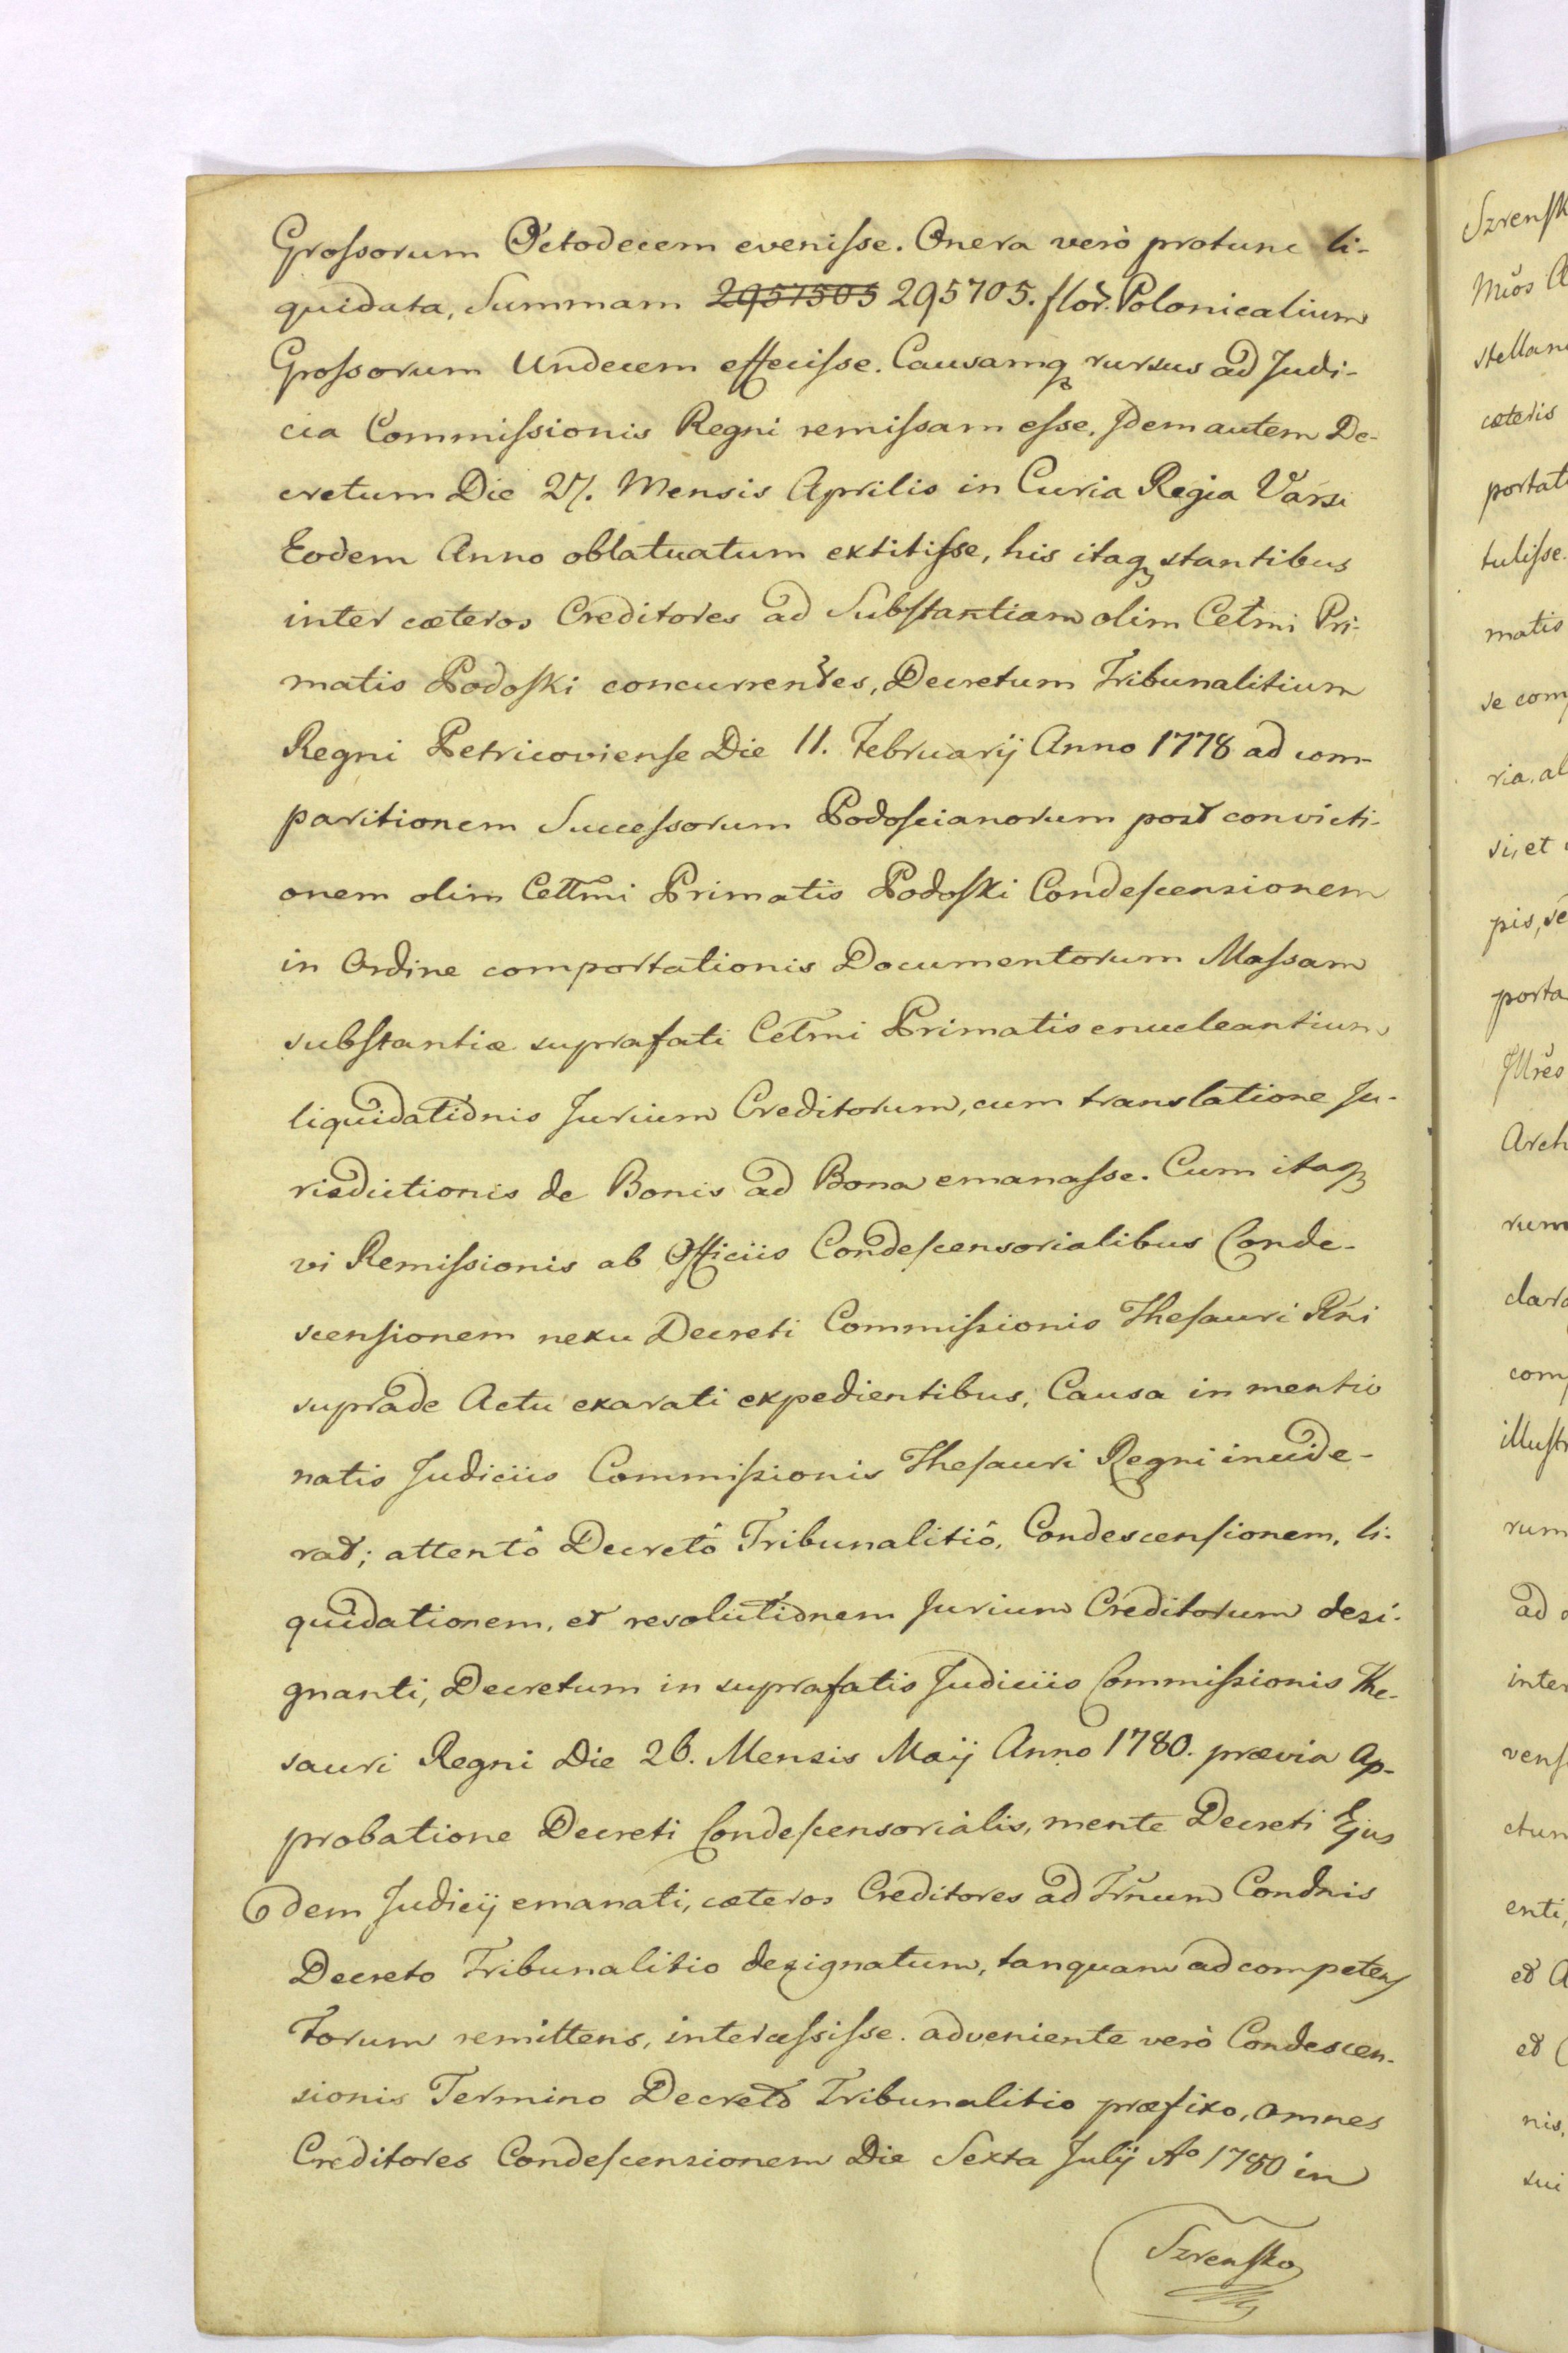 Grossorum Octodecem evenisse. Onera verò protunc li-
quidata, Summam 2957505 295705. flor. Polonicalium
Grossorum Undecem effecisse. Causamq rursus ad Judi-
cia Commissionis Regni remissam esse. Idem autem De-
cretum Die 27. Mensis Aprilis in Curia Regia Varsi
Eodem Anno oblatuatum extitisse, his itaq stantibus
inter cæteros Creditores ad Substantiam olim Celmi Pri-
matis Podoski concurrentes, Decretum Tribunalitium
Regni Petricoviense Die 11. Februarij Anno 1778 ad com-
paritionem Successorum Podoscianorum post convicti-
onem olim Celmi Primatis Podoski Condescensionem
in Ordine comportationis Documentorum Massam
substantiæ suprafati Celmi Primatis enucleantium
liquidationis Jurium Creditorum, cum translatione Ju-
risdictionis de Bonis ad Bona emanasse. Cum itaq
vi Remissionis ab Officiis Condescensorialibus Conde-
scensionem nexu Decreti Commissionis Thesauri Rni
suprade Actu exarati expedientibus, Causa in mentio
natis Judiciis Commissionis Thesauri Regni incide-
rat; attentô Decretô Tribunalitiô, Condescensionem, li-
quidationem, et resolutionem Jurium Creditorum desi-
gnanti, Decretum in suprafatis Judiciis Commissionis The-
sauri Regni Die 26. Mensis Maij Anno 1780. prævia Ap-
probatione Decreti Condescensorialis, mente Decreti Ejus
dem Judicij emanati, cæteros Creditores ad Trnum Condnis
Decreto Tribunalitio designatum, tanquam ad competens
Forum remittens, intercessisse. adveniente verò Condescen-
sionis Termino Decreto Tribunalitio præfixo, omnes
Creditores Condescensionem Die Sexta Julij Ao 1780 in
Szrensko
Szrensk
Mños A
stellan
cæteris
portat
tulisse.
matis
se com
ria. al
si, et
pis, se
porta
Illres
Arch
rum
clara
com
illustr
rum
ad
inter
vens
ctun
enti,
et A
et C
nis,
sui